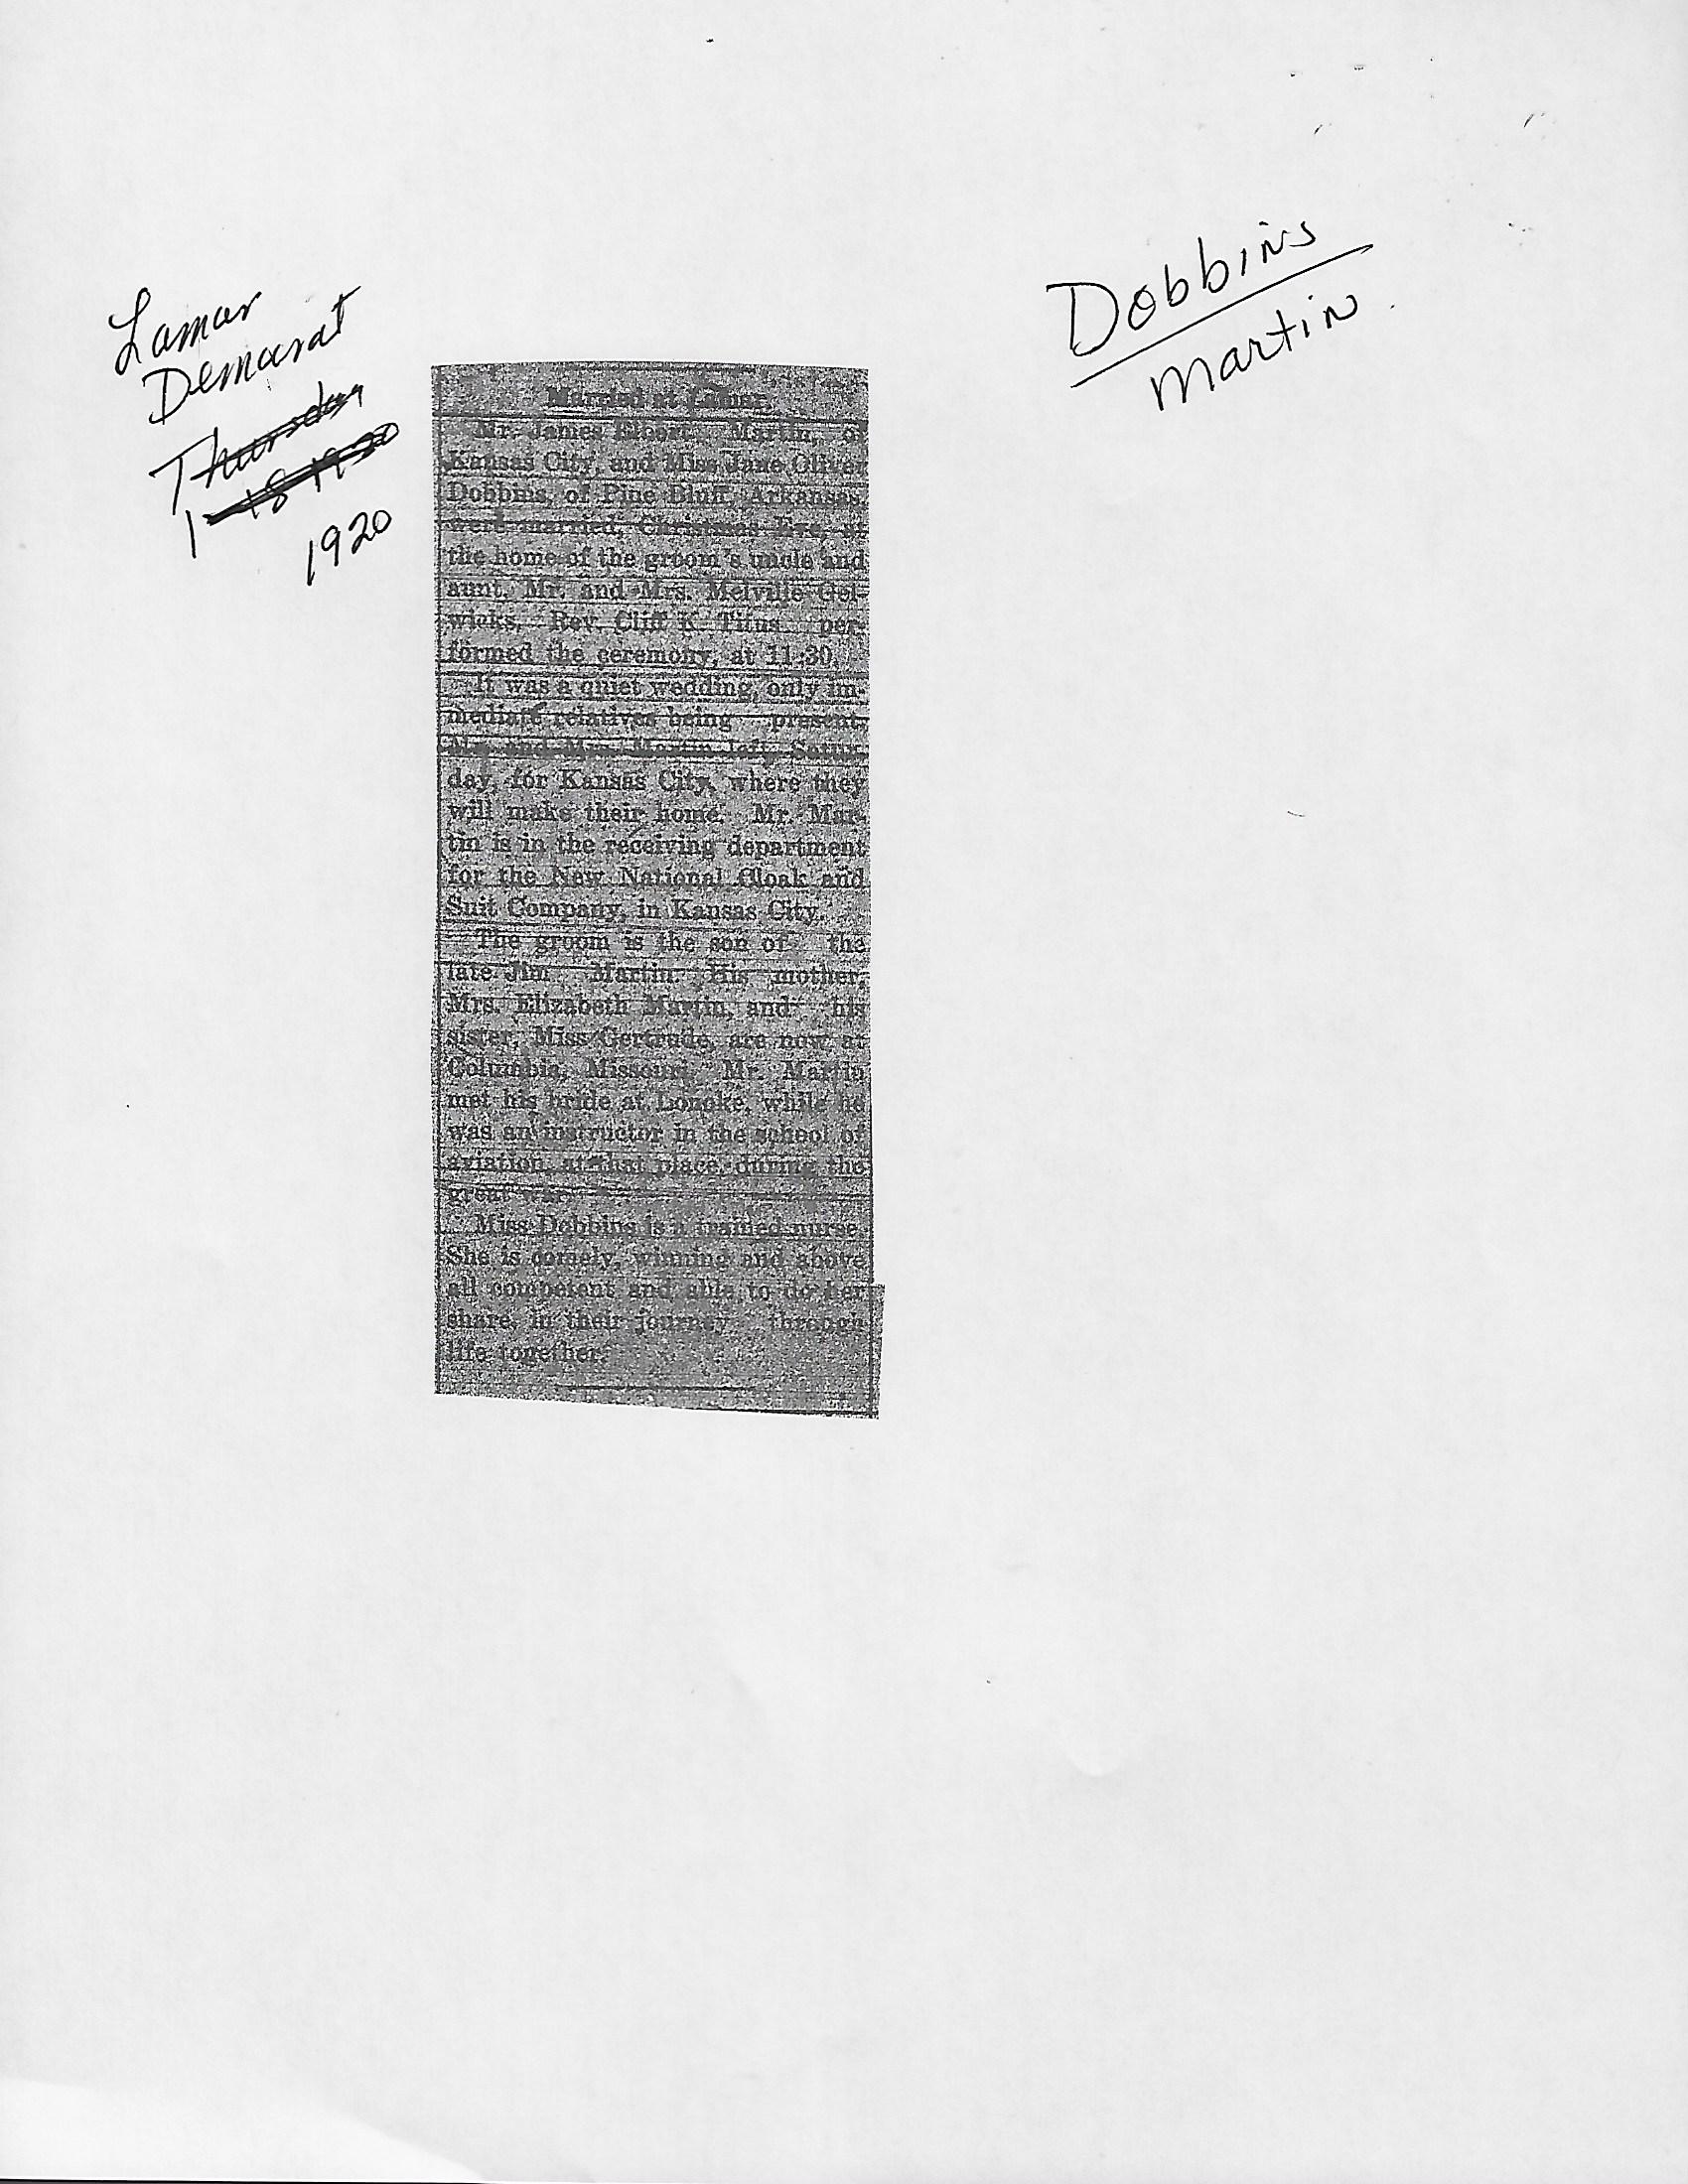 Lamar
Democrat
Thursday
1-18-1920
1920
Dobbins
Martin
Married at Lamar.
Mr. James Elbert Martin, of
Kansas City, and Miss Jane Oliver
Dobbins, of Pine Bluff, Arkansas,
were married, Christmas Eve, at
the home of the groom's uncle and
aunt, Mr. and Mrs. Melville Gel-
wicks. Rev. Cliff K. Titus per-
formed the ceremony, at 11:30.
It was a quiet wedding, only im-
mediate relatives being present.
Mr. and Mrs. Martin left, Satur-
day, for Kansas City, where they
will make their home. Mr. Mar-
tin is in the receiving department
for the New National Cloak and
Suit Company, in Kansas City.
The groom is the son of the
late Jim Martin. His mother,
Mrs. Elizabeth Martin, and his
sister, Miss Gertrude, are now at
Columbia, Missouri. Mr. Martin
met his bride at Lonoke, while he
was an instructor in the school of
aviation, at that place, during the
great war.
Miss Dobbins is a trained nurse.
She is comely, winning and above
all competent and able to do her
share, in their journey through
life together.